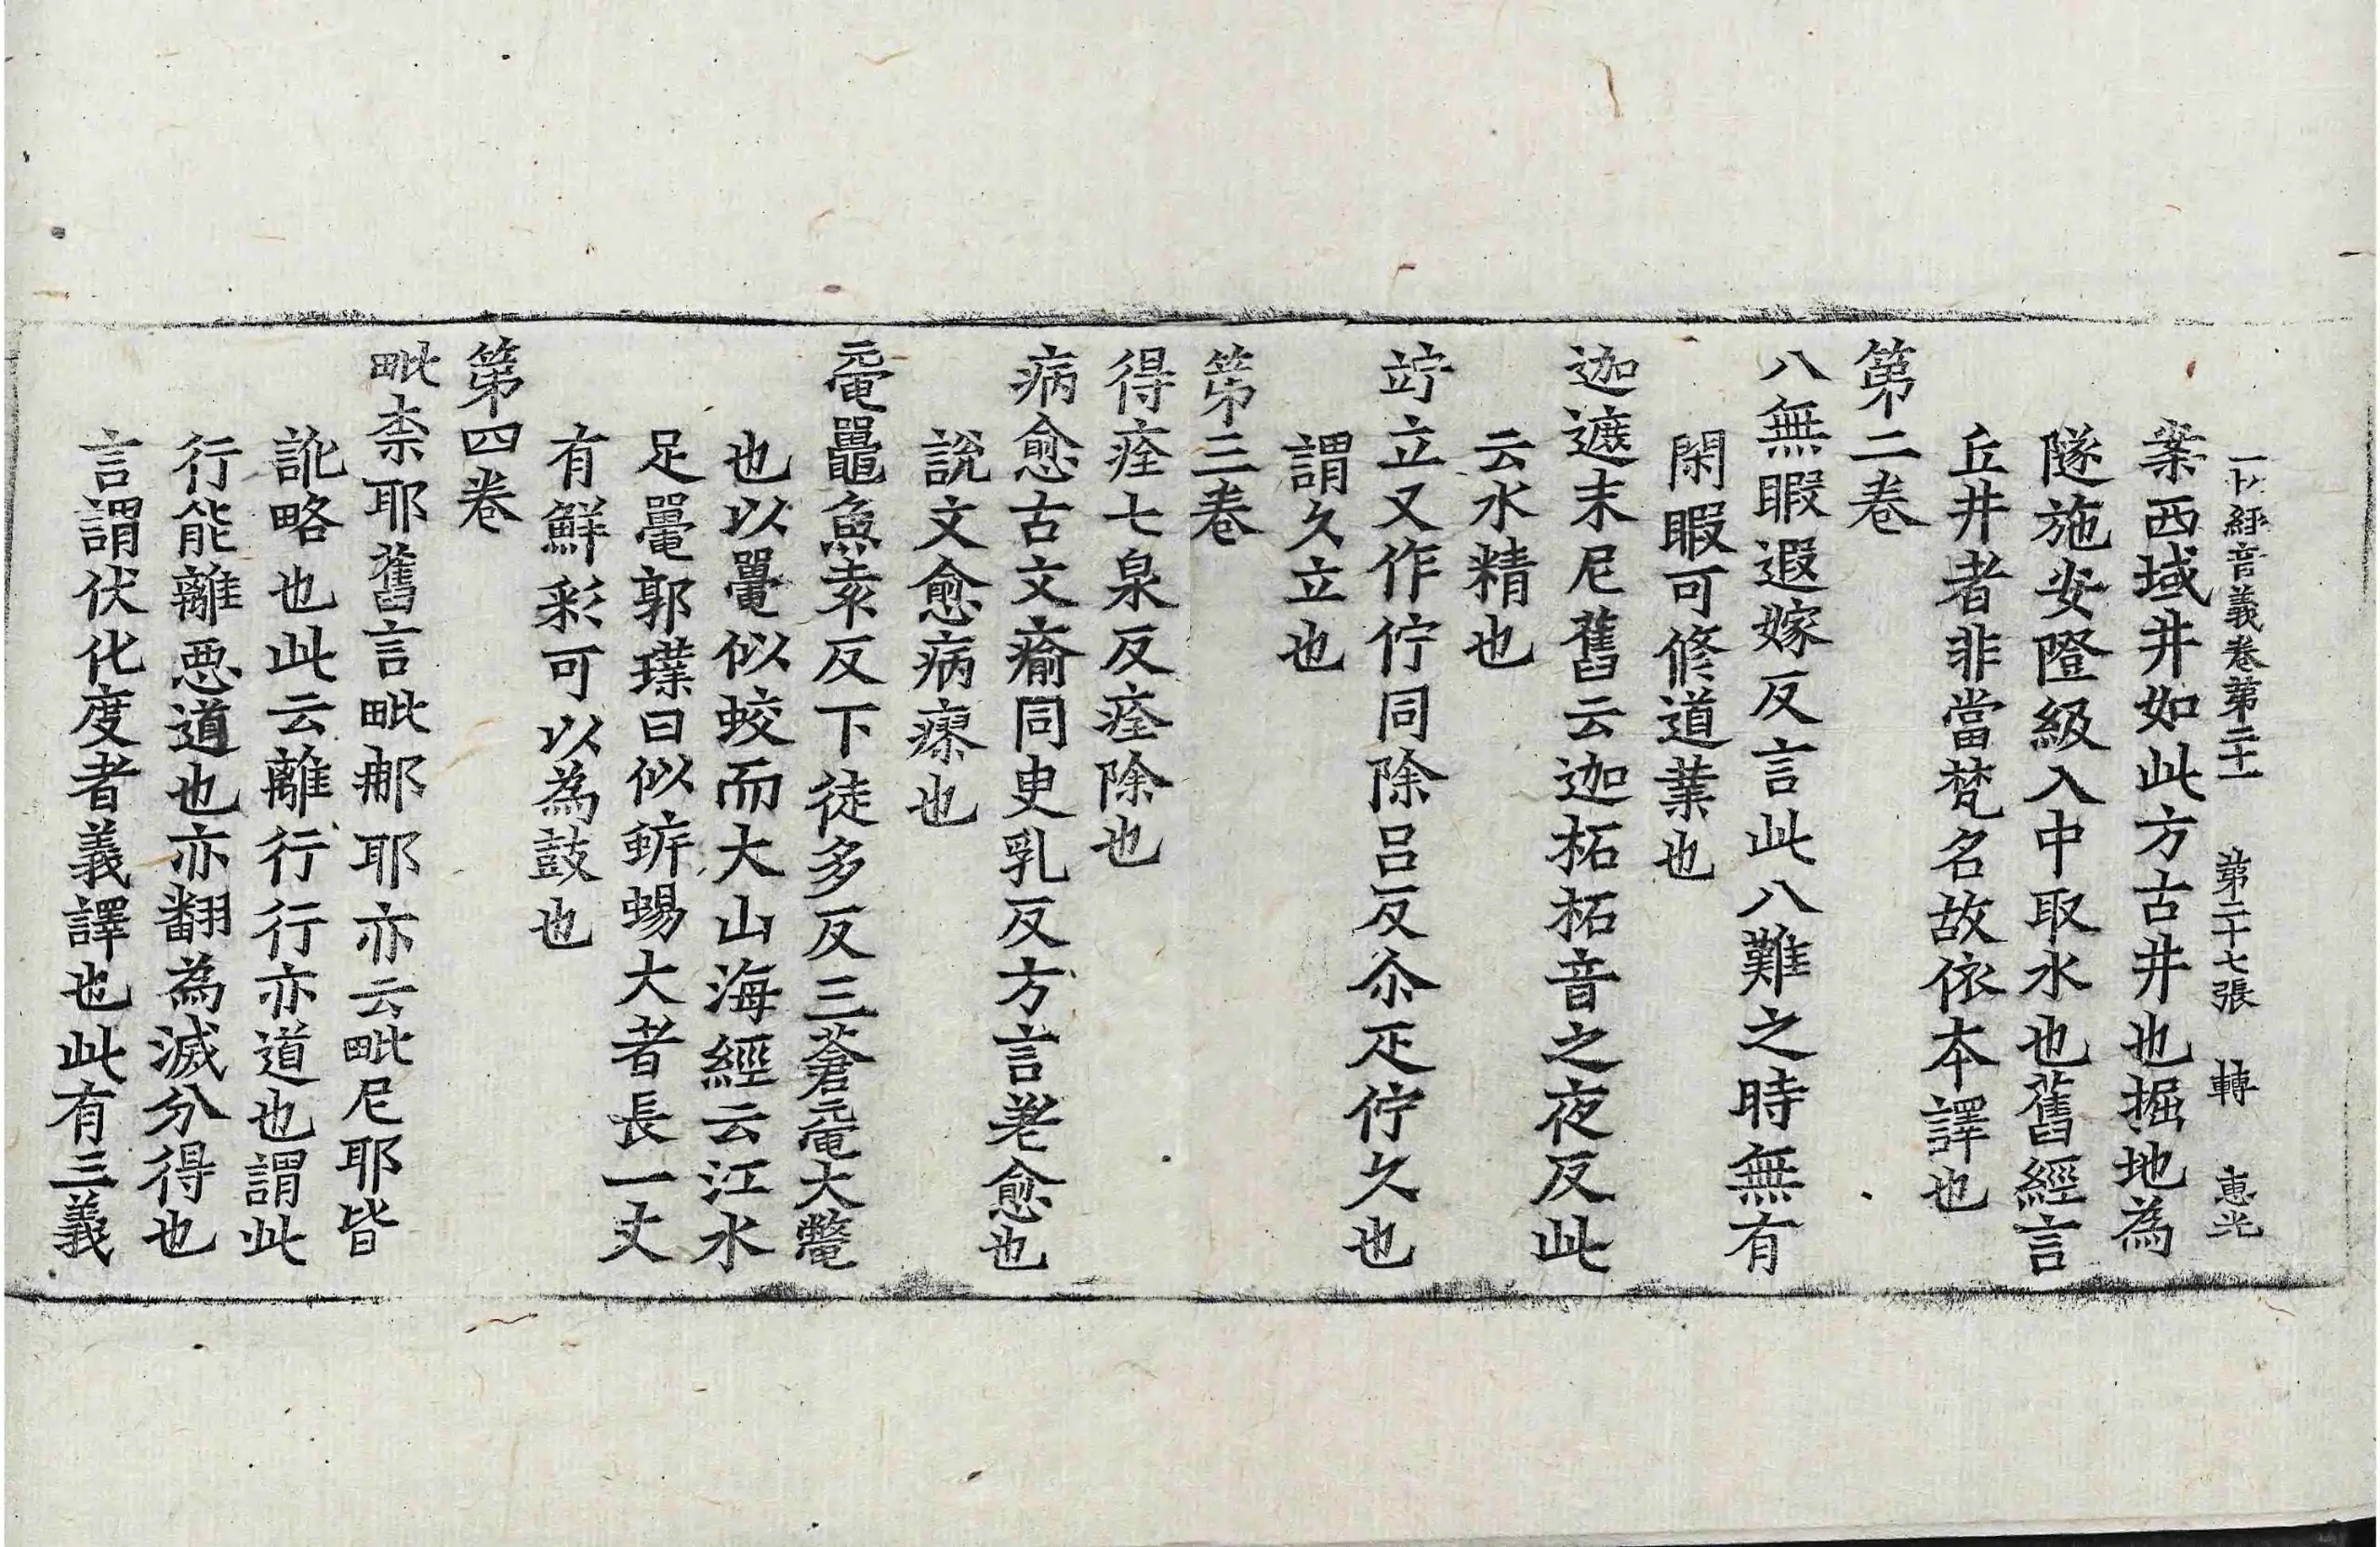 一切經音義卷第二十一 第二十七張 轉 惠光
案西域井如此方古井也掘地為
隧施安隥級入中取水也舊經言
丘井者非當梵名故依本譯也
第二卷
八無暇遐嫁反言此八難之時無有
閑暇可修道業也
迦遮末尼舊云迦柘柘音之夜反此
云水精也
竚立又作佇同除呂反尒疋佇久也
謂久立也
第三卷
得痊七泉反痊除也
病愈古文瘉同臾乳反方言差愈也
說文愈病瘳也
黿鼉魚袁反下徒多反三蒼黿大鼈
也以鼉似蛟而大山海經云江水
足鼉郭璞曰似蜥蜴大者長一丈
有鮮彩可以為鼓也
第四卷
毗柰耶舊言毗那耶亦云毗尼耶皆
訛略也此云離行行亦道也謂此
行能離惡道也亦翻為滅分得也
言謂伏化度者義譯也此有三義